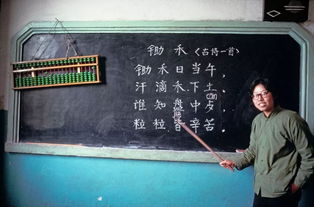 锄禾〈古诗一首〉
锄禾日当午，
汗滴禾下土。
谁知盤中歺，
粒粒皆辛苦。